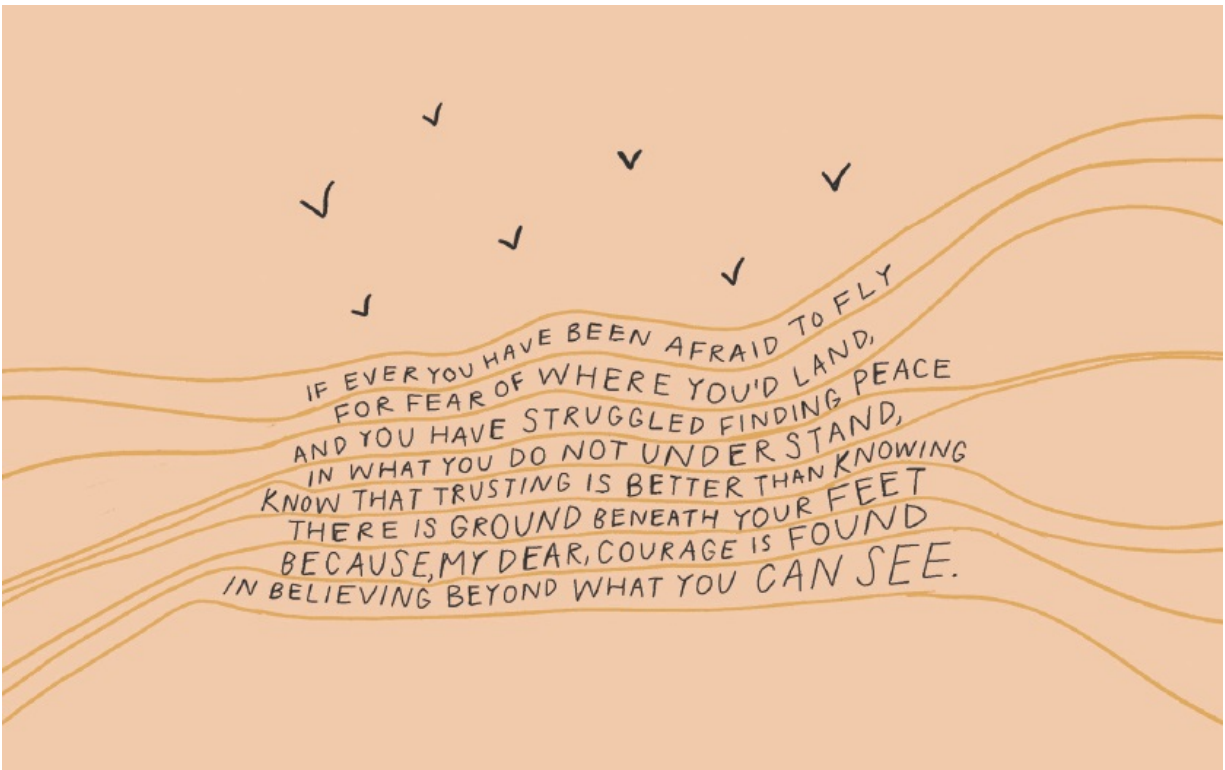 IF EVER YOU HAVE BEEN AFRAID TO FLY
FOR FEAR OF WHERE YOU'D LAND,
AND YOU HAVE STRUGGLED FINDING PEACE
IN WHAT YOU DO NOT UNDERSTAND,
KNOW THAT TRUSTING IS BETTER THAN KNOWING
THERE IS GROUND BENEATH YOUR FEET
BECAUSE, MY DEAR, COURAGE IS FOUND
IN BELIEVING BEYOND WHAT YOU CAN SEE.